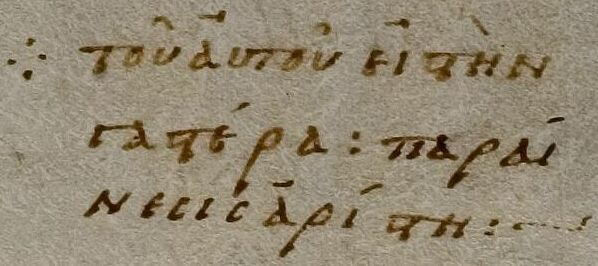 ⁘ τοῦ ἀυτοῦ εἰ στὴν
γαστέρα : παραί
νεσις ἀρίστη :—